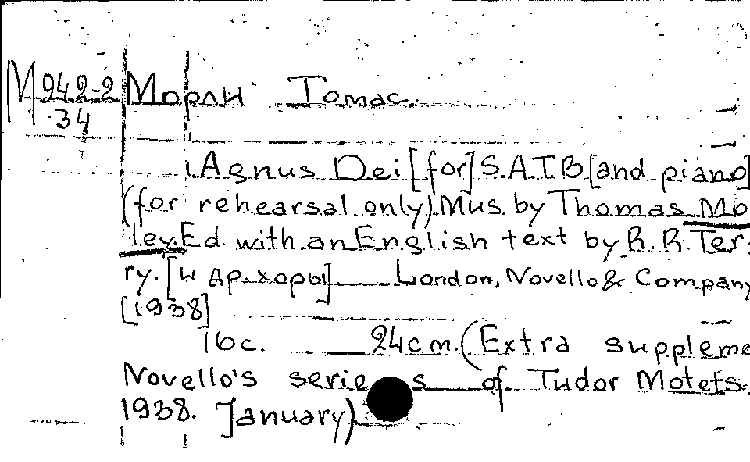 М 942-2 Морли Томас.
34
Agnus Dei [for] S.A.T.B. [and piano]
(for rehearsal only) Mus. by Thomas Mo
ley. Ed with an English text by R. R. Ter.
ry. [и др. хоры] London, Novello & Company
[1938]
16 с. 24 cm. (Extra suppleme
Novello's series of Tudor Motets.
1938. January)